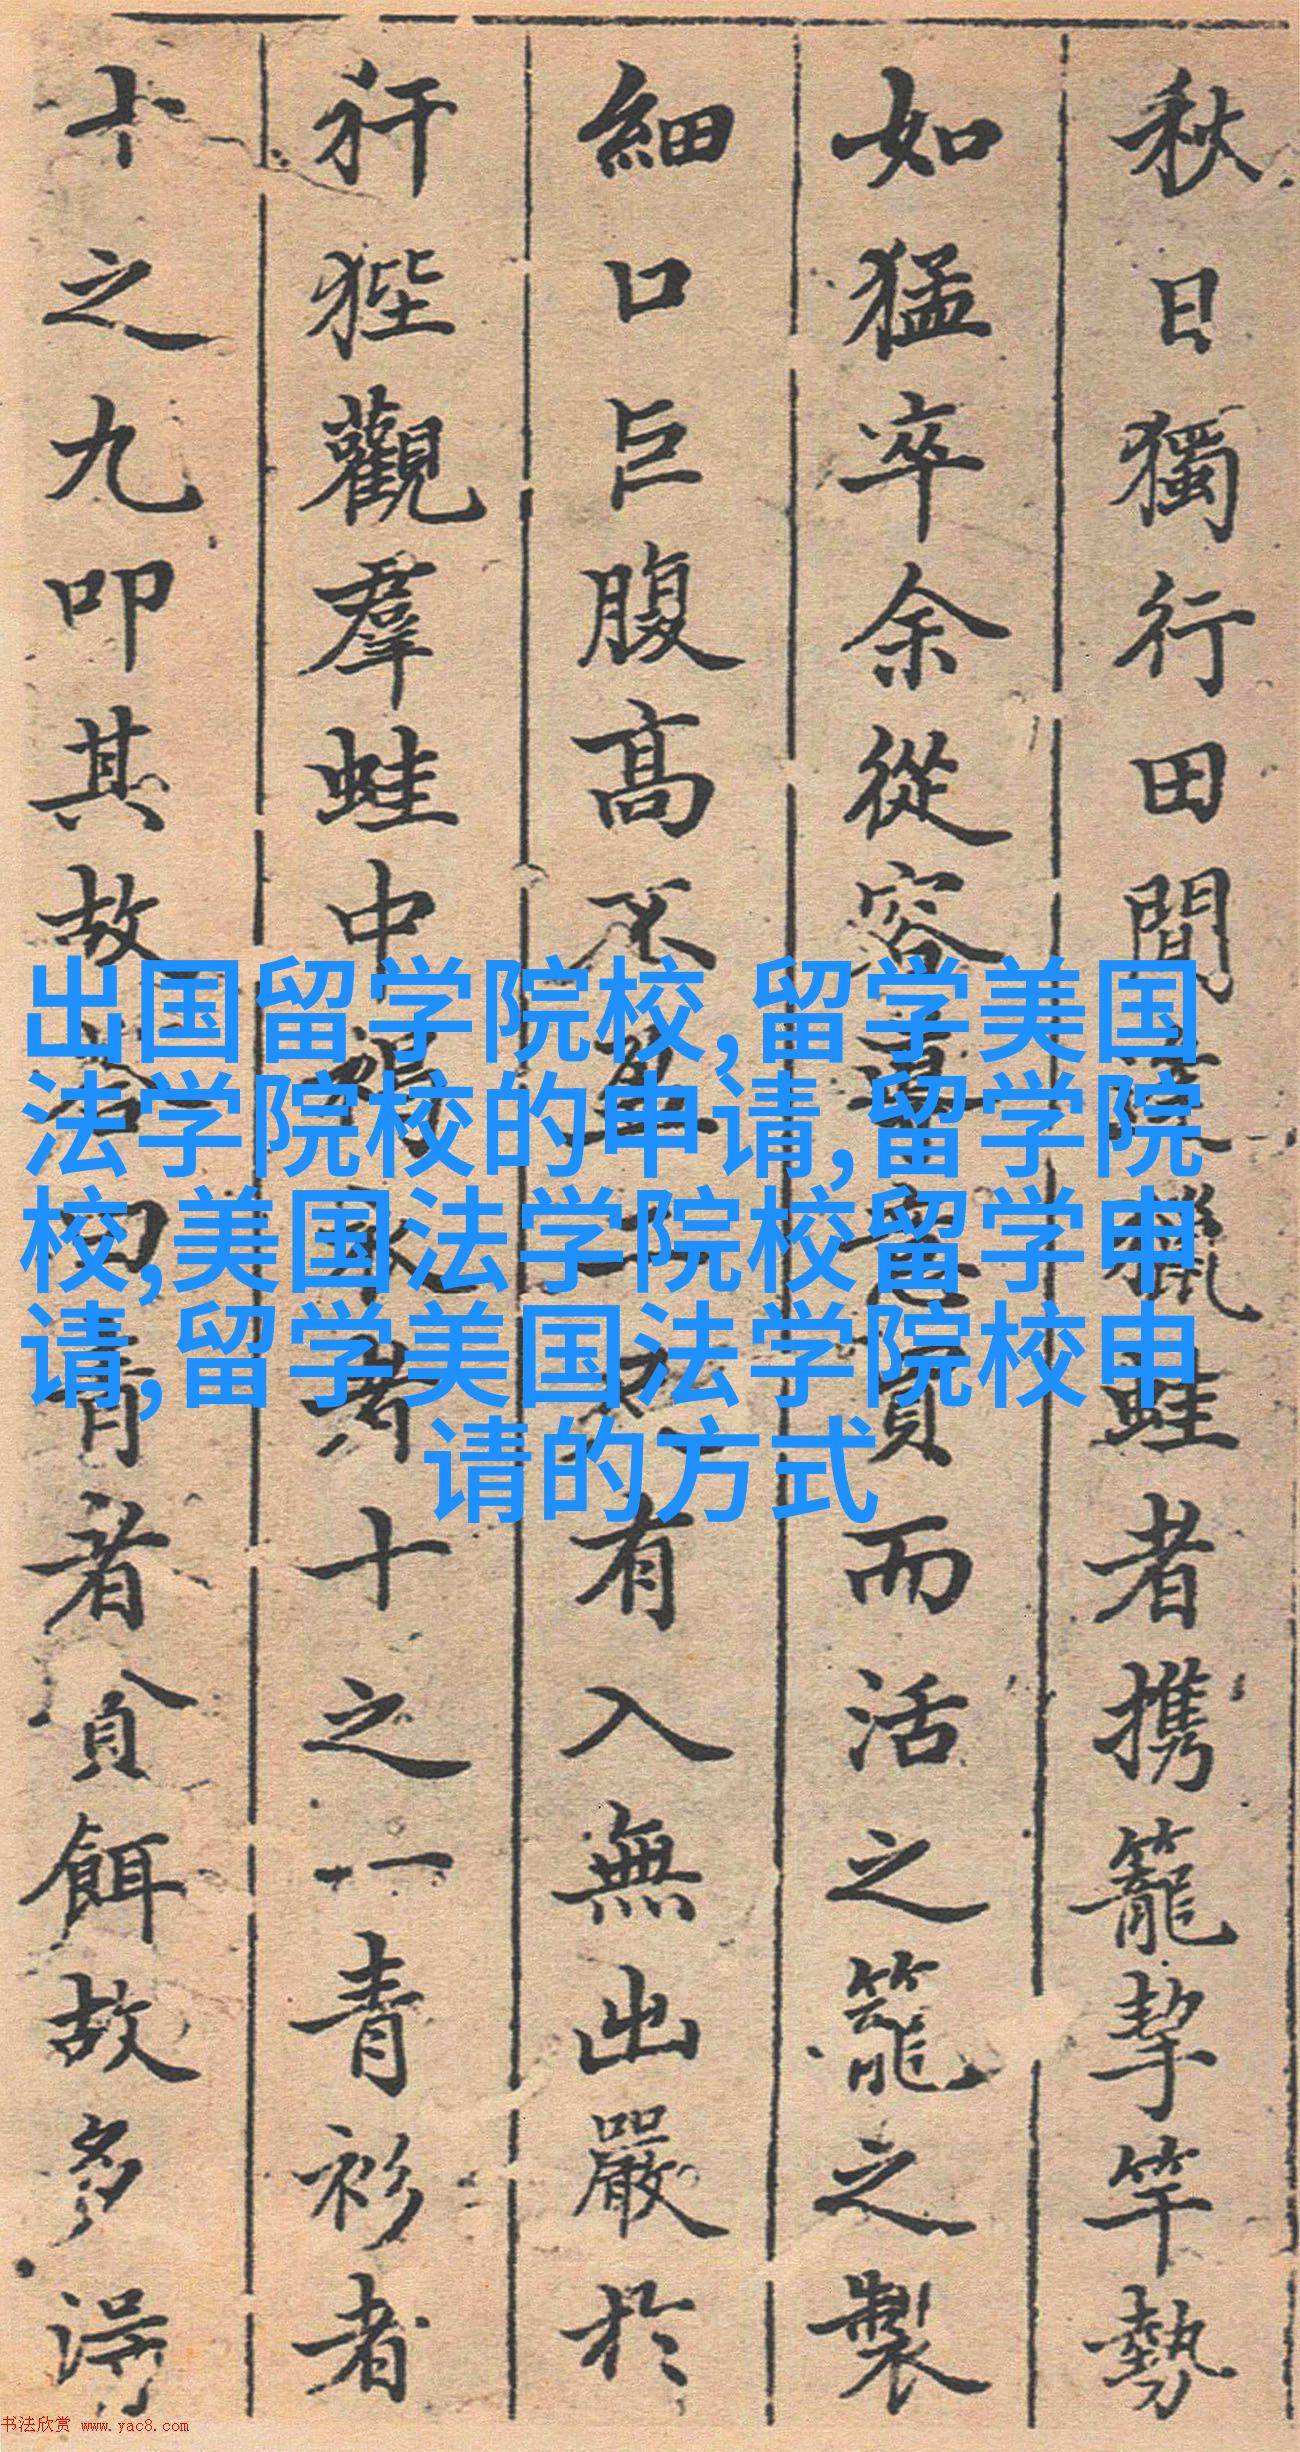 秋日獨行田間蛙者攜籠挈竿勢
如猛卒余從容而活之籠之製
細口巨腹高不有入無出嚴於
犴狴觀羣蛙中者十之一青衫者
十之九叩其故青者貪餌故多得
出国留学院校,留学美国
法学院校的申请,留学院
校,美国法学院校留学申
请,留学美国法学院校申
请的方式
书法欣赏 www.yac8.com